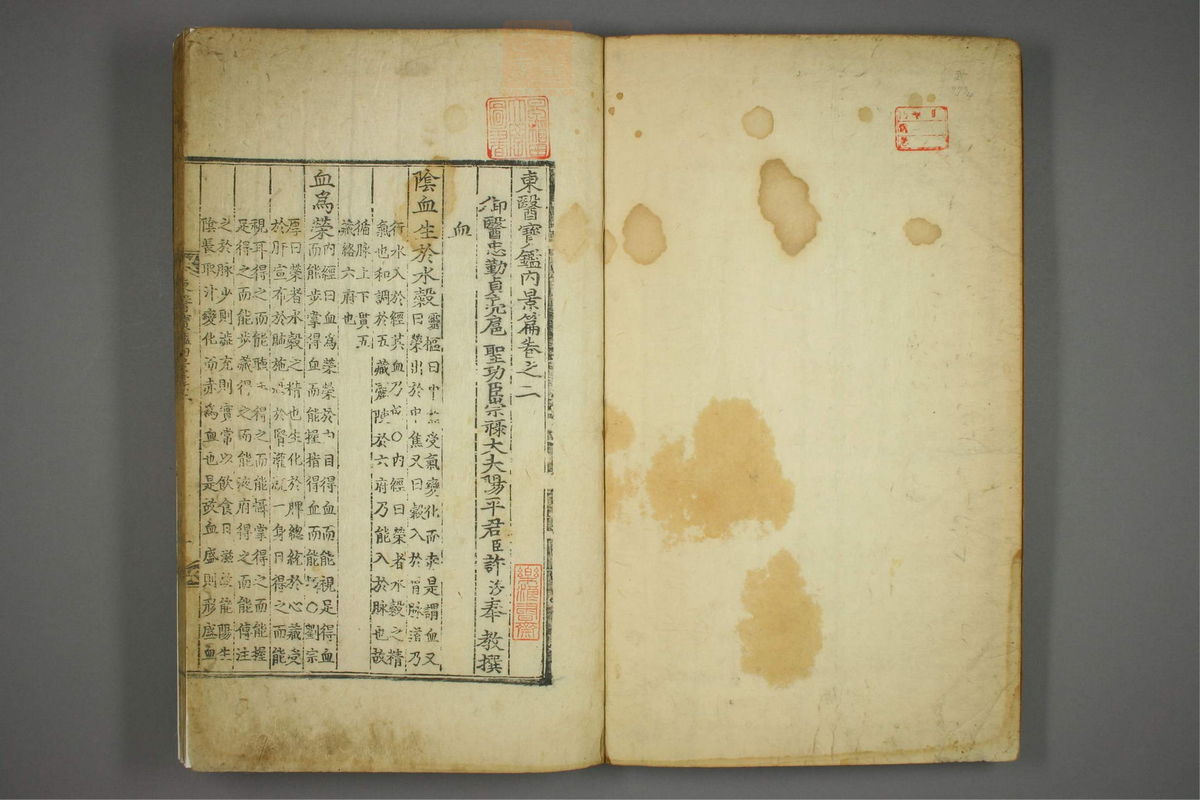 東醫寶鑑内景篇卷之二
御醫忠勤貞亮扈 聖功臣崇祿大夫陽平君臣許浚奉 教撰
血
陰血生於水穀
靈樞曰中焦受氣變化而赤是謂血又
曰榮出於中焦又曰穀入於胃脉道乃
行水入於經其血乃成○内經曰榮者水穀之精
氣也和調於五藏灑陳於六府乃能入於脉也故
循脉上下貫五
藏絡六府也
血爲榮
内經曰血爲榮榮於内目得血而能視足得血
而能步掌得血而能握指得血而能攝○劉宗
厚曰榮者水穀之精也生化於脾緫統於心藏受
於肝宣布於肺施泄於腎灌漑一身目得之而能
視耳得之而能聽手得之而能攝掌得之而能握
足得之而能步藏得之而能液府得之而能傳注
之於脉少則澁充則實常以飲食日滋故能陽生
陰長取汁變化而赤爲血也是故血盛則形盛血